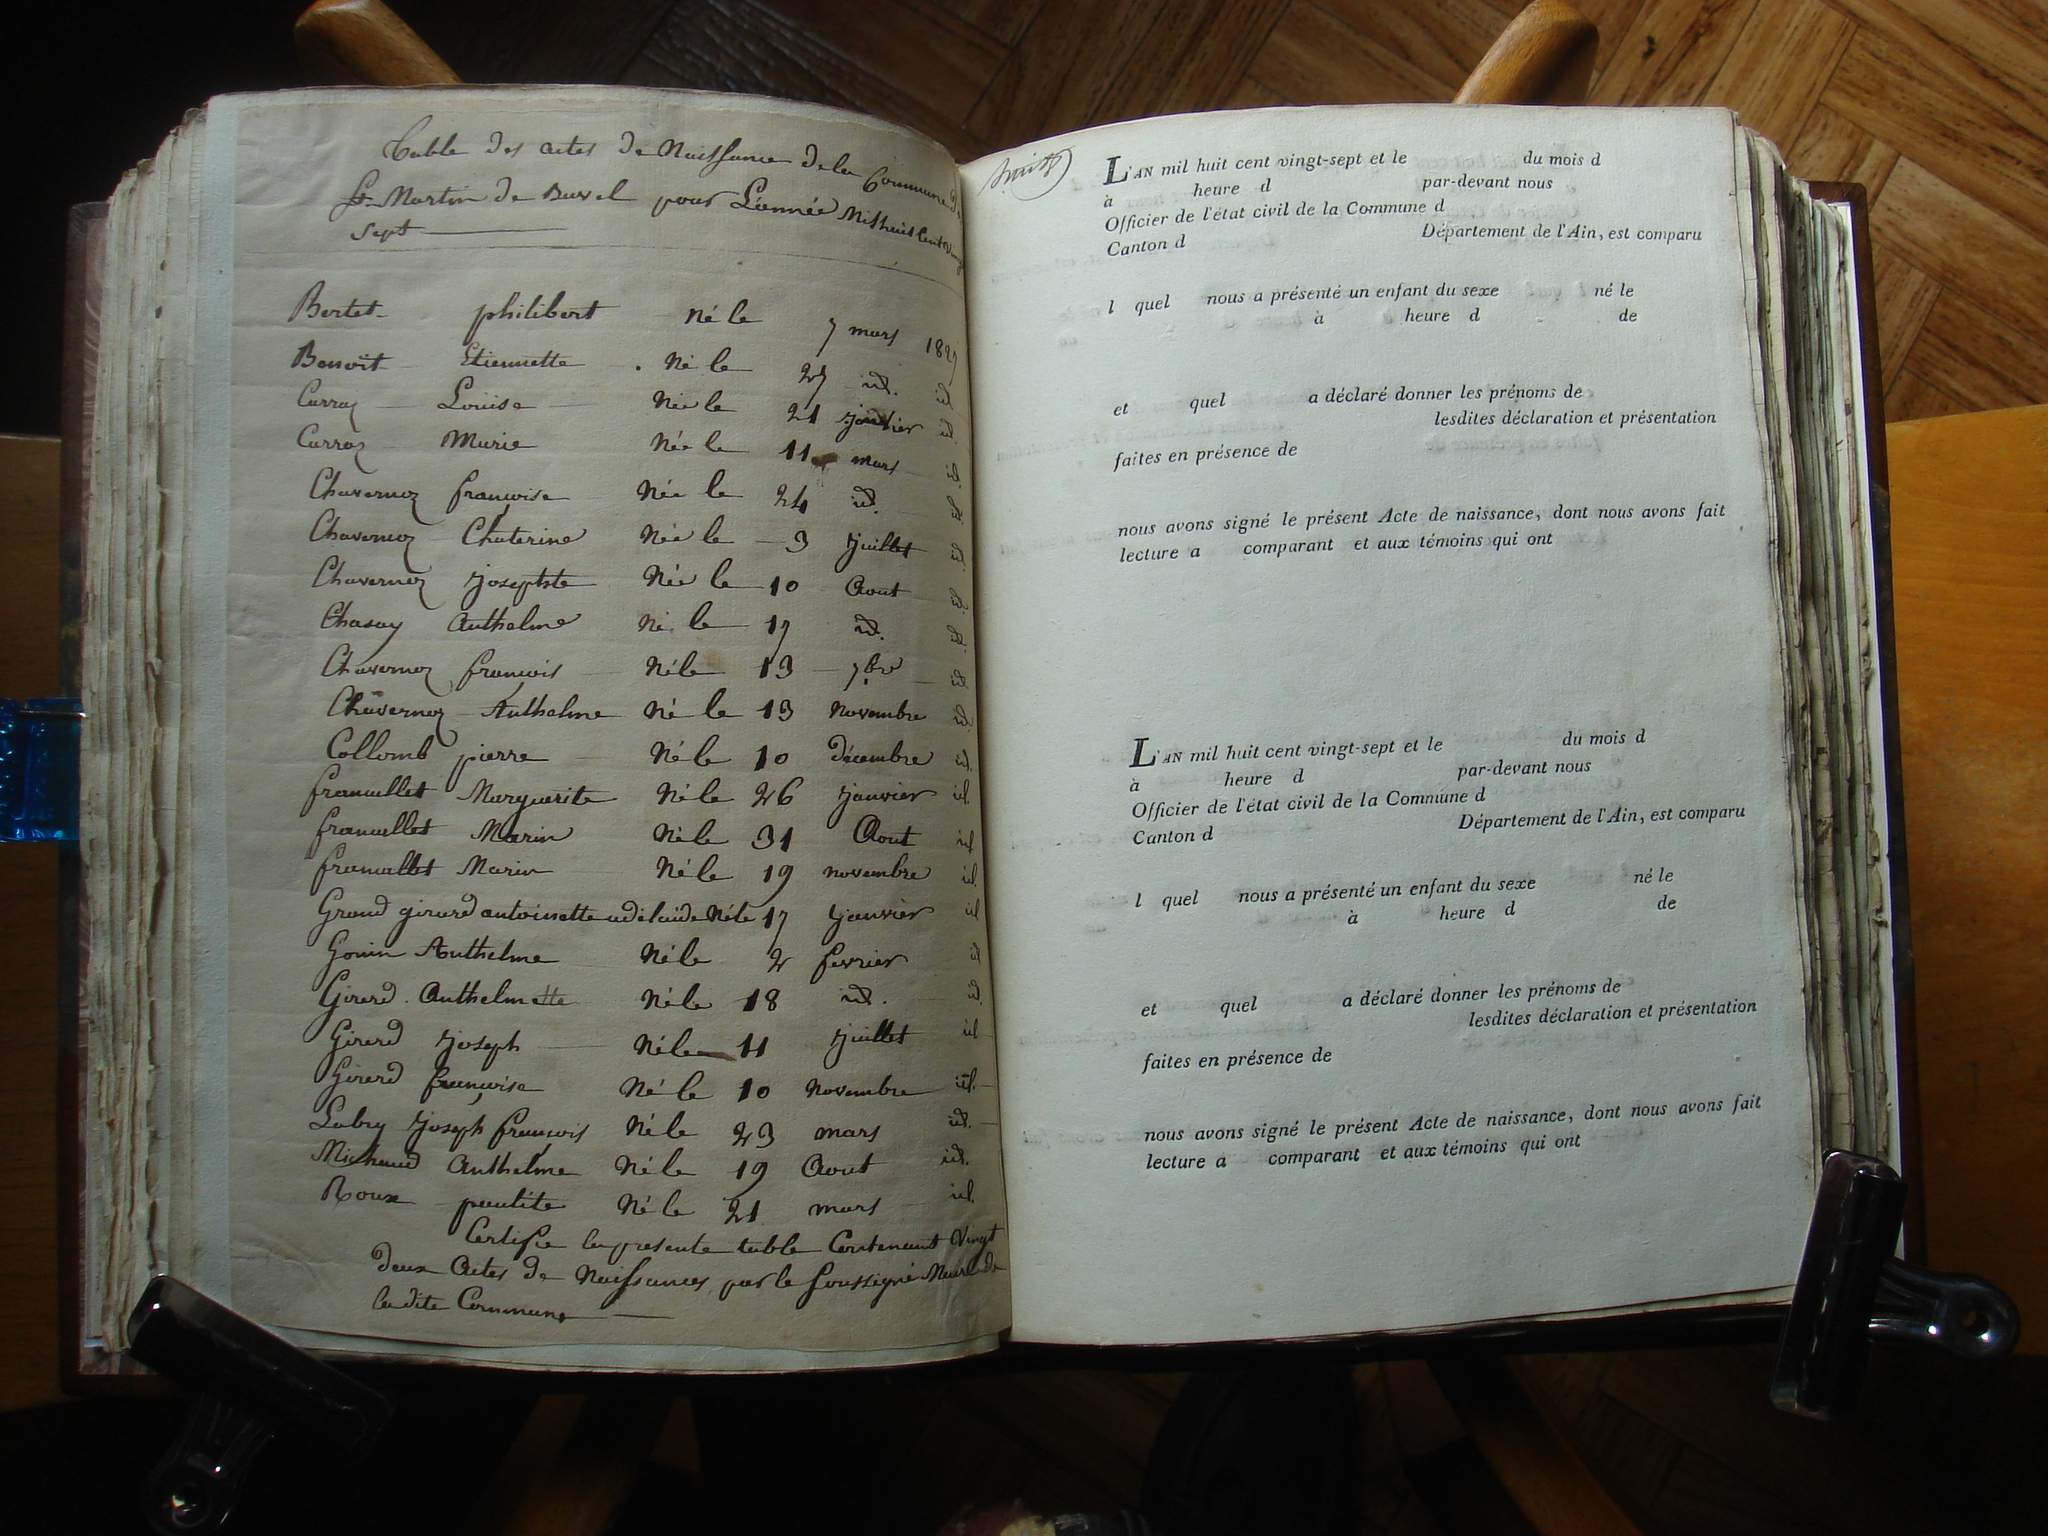 Table des actes de Naissance de la Commune de
St Martin de Bavel pour L'année Mil huit Cent Vingt
sept
Bertet philibert Né le 7 mars 1827
Benoit Etiennette Né le 27 id. id.
Carraz Louise Née le 21 janvier id.
Carraz Marie Née le 11 mars id.
Chavernoz françoise Née le 24 id. id.
Chavernoz Chaterine Née le 3 juillet id.
Chavernoz josephte Née le 10 Aout id.
Chasay Anthelme Né le 17 id. id.
Chavernoz françois Né le 13 7bre id.
Chavernoz Anthelme Né le 13 Novembre id.
Collomb pierre Né le 10 décembre id.
francallet Marguerite Né le 26 janvier id.
francallet Marin Né le 31 Aout id.
francallet Marin Né le 19 novembre id.
Grand girard antoinette adelaïde Né le 17 janvier id.
Gonin Anthelme Né le 2 fevrier id.
Girard Anthelmette Né le 18 id. id.
Girard joseph Né le 11 juillet id.
Girard françoise Né le 10 Novembre id.
Labry joseph françois Né le 23 mars id.
Michaud Anthelme Né le 19 Aout id.
Roux paulite Né le 21 mars id.
Certifie la presente table Contenant Vingt
deux Actes de Naissances, par le soussigné Maire de
la dite Commune
L'AN mil huit cent vingt-sept et le du mois d
à heure d par-devant nous
Officier de l'état civil de la Commune d
Canton d Département de l'Ain, est comparu
l quel nous a présenté un enfant du sexe né le
à heure d de
et quel a déclaré donner les prénoms de
lesdites déclaration et présentation
faites en présence de
nous avons signé le présent Acte de naissance, dont nous avons fait
lecture a comparant et aux témoins qui ont
L'AN mil huit cent vingt-sept et le du mois d
à heure d par-devant nous
Officier de l'état civil de la Commune d
Canton d Département de l'Ain, est comparu
l quel nous a présenté un enfant du sexe né le
à heure d de
et quel a déclaré donner les prénoms de
lesdites déclaration et présentation
faites en présence de
nous avons signé le présent Acte de naissance, dont nous avons fait
lecture a comparant et aux témoins qui ont